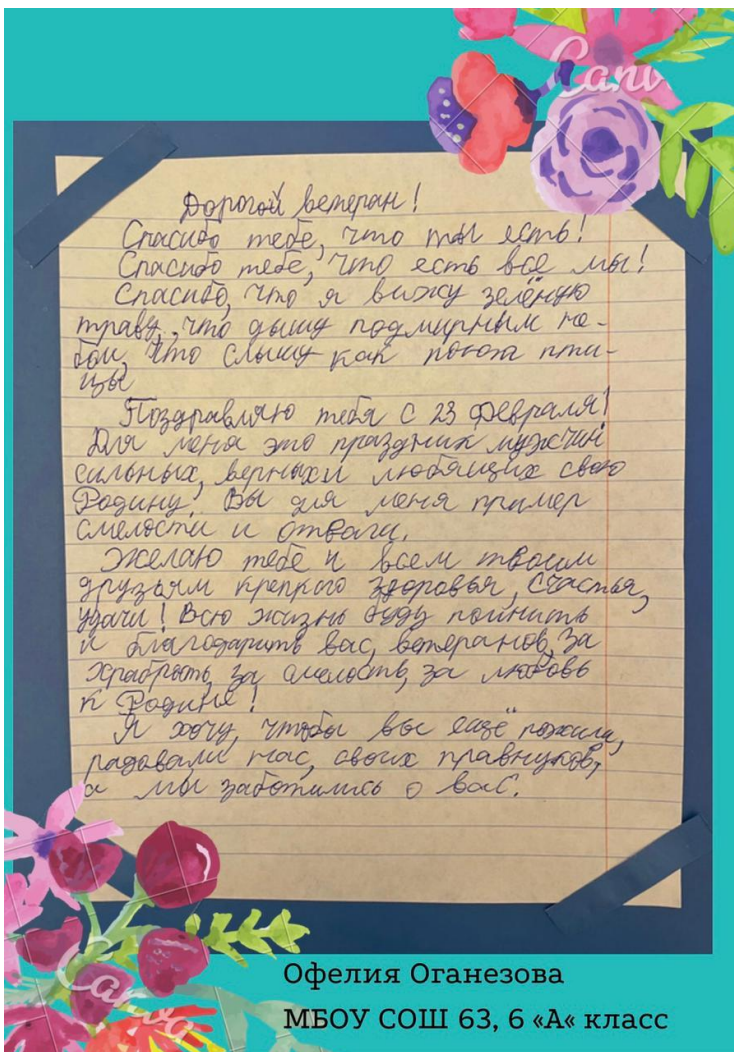 Canv
Дорогой ветеран!
Спасибо тебе, что ты есть!
Спасибо тебе, что есть все мы!
Спасибо, что я вижу зелёную
траву, что дышу подмирным не-
бом, что слышу как поют пти-
цы
Поздравляю тебя с 23 февраля!
Для меня это праздник мужчин
сильных, верных и любящих свою
Родину. Вы для меня пример
смелости и отваги.
Желаю тебе и всем твоим
друзьям крепкого здоровья, счастья,
удачи! Всю жизнь буду помнить
и благодарить вас, ветеранов, за
храбрость, за смелость, за любовь
к Родине!
Я хочу, чтобы вы ещё пожили,
радовали нас, своих правнуков,
а мы заботились о вас.
Canva
Офелия Оганезова
МБОУ СОШ 63, 6 «А« класс